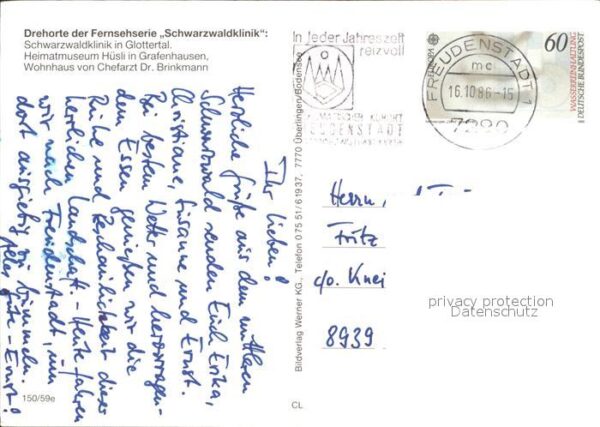 Drehorte der Fernsehserie „Schwarzwaldklinik“:
Schwarzwaldklinik in Glottertal.
Heimatmuseum Hüsli in Grafenhausen,
Wohnhaus von Chefarzt Dr. Brinkmann
Ihr lieben!
Herzliche Grüße aus dem mittleren
Schwarzwald senden Euch Erika,
Christiane, Susanne und Ernst.
Bei bestem Wetter und hervorragen-
dem Essen genießen wir die
Ruhe und Beschaulichkeit dieser
herrlichen Landschaft. - Heute fahren
wir nach Freudenstadt, um
dort ausgiebig zu bummeln.
Alles Gute - Ernst!
150/59e
CL
Bildverlag Werner KG., Telefon 0 75 51 / 6 19 37, 7770 Überlingen/Bodensee
In jeder Jahreszeit
reizvoll
KURORT
FREUDENSTADT
FREUDENSTADT 1
mc
16.10.86-15
7290
EUROPA
60
WASSERREINHALTUNG
DEUTSCHE BUNDESPOST
Herrn
Fritz
c/o. Knei
8939
privacy protection
Datenschutz